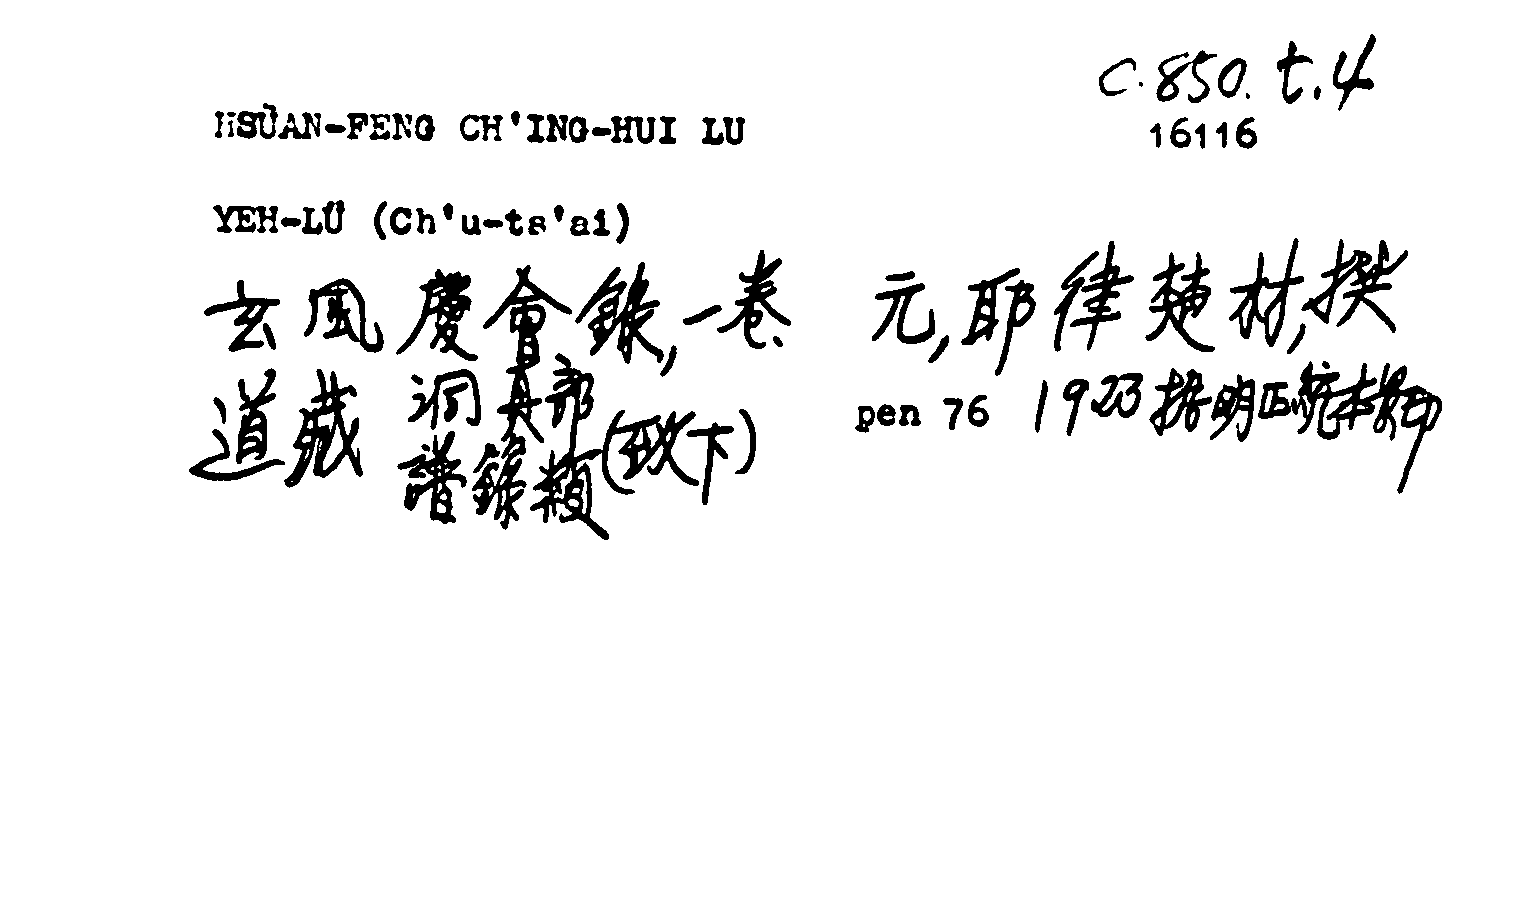 C.850. t.4
HSÜAN-FENG CH'ING-HUI LU
16116
YEH-LÜ (Ch'u-ts'ai)
玄風慶會錄,一卷 元,耶律楚材,撰
道藏 洞真部 譜錄類 (致下) pen 76 1923 據明正統本影印